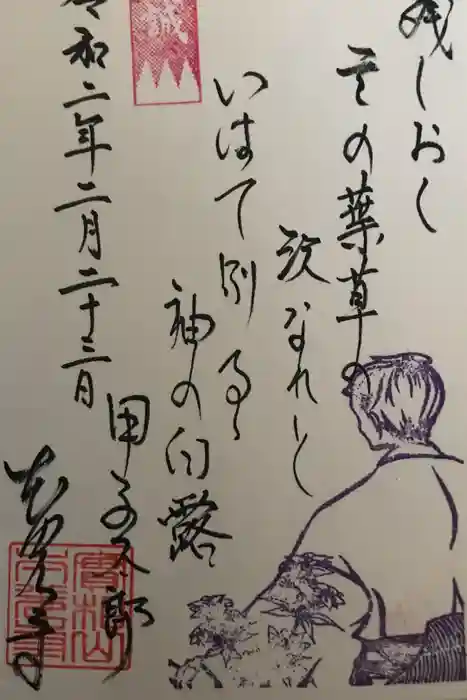 残しおく
言の葉草の
沢なれと
いはて別るゝ
袖の白露
誠
甲子太郎
令和二年二月二十三日
本光寺